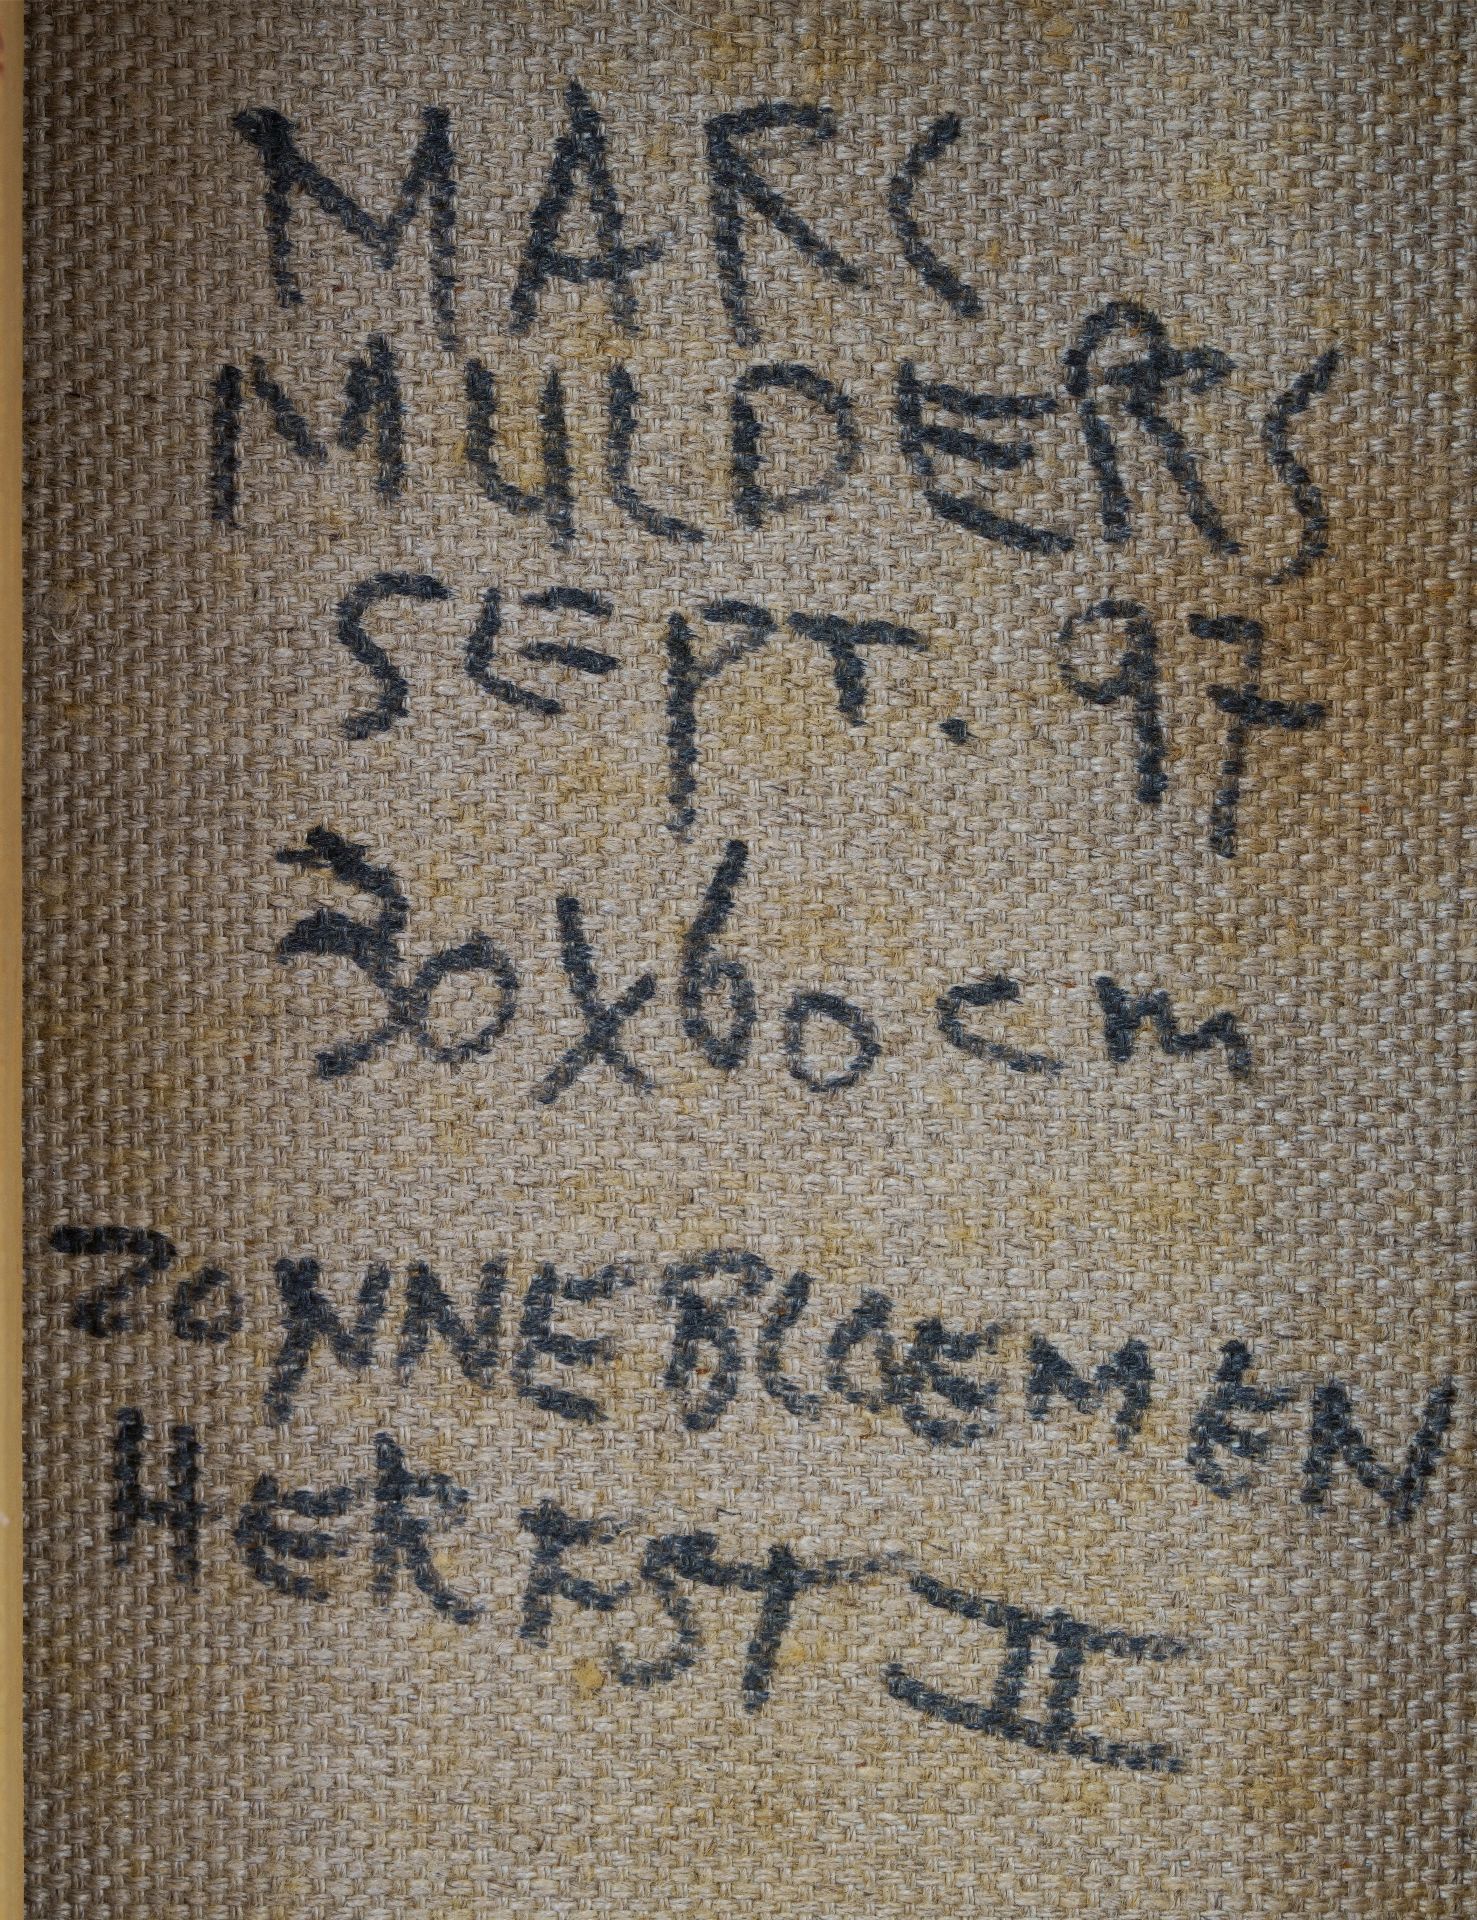 MARC
MULDERS
SEPT. 97
30x60 cm
ZONNEBLOEMEN
HERFST II